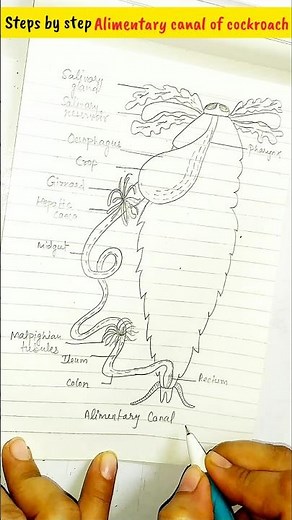 Steps by step Alimentary canal of cockroach
Salivary
gland
Salivary
reservoir
Oesophagus
Pharynx
Crop
Gizzard
Hepatic
caeca
Midgut
Malpighian
tubules
Ileum
Colon
Rectum
Alimentary Canal